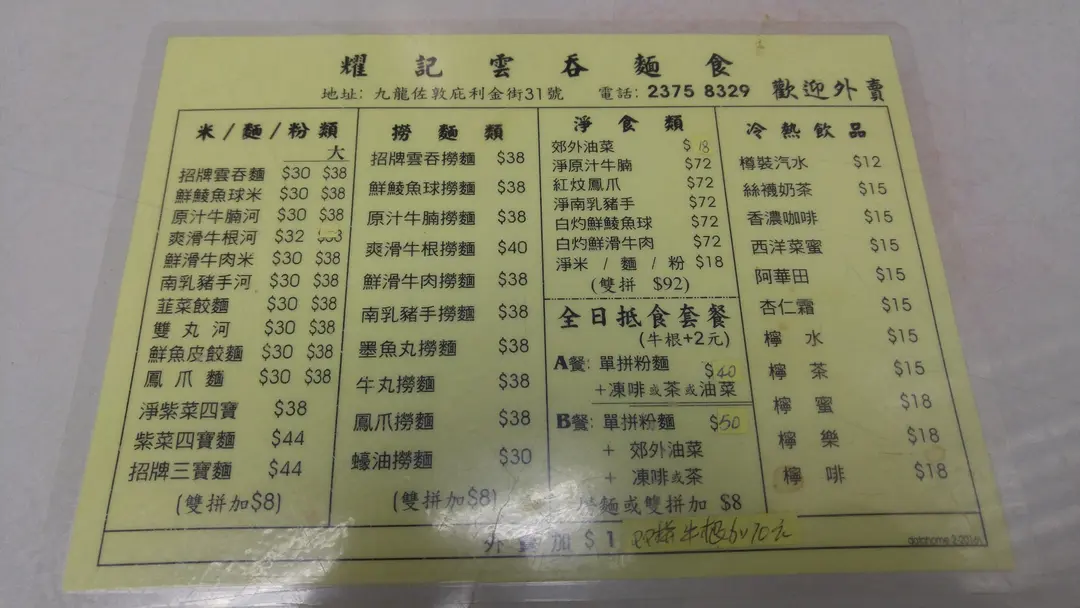 耀記雲吞麵食
地址: 九龍佐敦庇利金街31號 電話: 2375 8329 歡迎外賣
米/麵/粉類
大
招牌雲吞麵 $30 $38
鮮鯪魚球米 $30 $38
原汁牛腩河 $30 $38
爽滑牛根河 $32
鮮滑牛肉米 $30 $38
南乳豬手河 $30 $38
韮菜餃麵 $30 $38
雙丸河 $30 $38
鮮魚皮餃麵 $30 $38
鳳爪麵 $30 $38
淨紫菜四寶 $38
紫菜四寶麵 $44
招牌三寶麵 $44
(雙拼加$8)
撈麵類
招牌雲吞撈麵 $38
鮮鯪魚球撈麵 $38
原汁牛腩撈麵 $38
爽滑牛根撈麵 $40
鮮滑牛肉撈麵 $38
南乳豬手撈麵 $38
墨魚丸撈麵 $38
牛丸撈麵 $38
鳳爪撈麵 $38
蠔油撈麵 $30
(雙拼加$8)
淨食類
郊外油菜 $18
淨原汁牛腩 $72
紅炆鳳爪 $72
淨南乳豬手 $72
白灼鮮鯪魚球 $72
白灼鮮滑牛肉 $72
淨米/麵/粉 $18
(雙拼 $92)
全日抵食套餐
(牛根+2元)
A餐: 單拼粉麵 $40
+凍啡或茶或油菜
B餐: 單拼粉麵 $50
+ 郊外油菜
+ 凍啡或茶
撈麵或雙拼加 $8
冷熱飲品
樽裝汽水 $12
絲襪奶茶 $15
香濃咖啡 $15
西洋菜蜜 $15
阿華田 $15
杏仁霜 $15
檸水 $15
檸茶 $15
檸蜜 $18
檸樂 $18
檸啡 $18
外賣加 $1 牛根 10元
datahome 2-2016